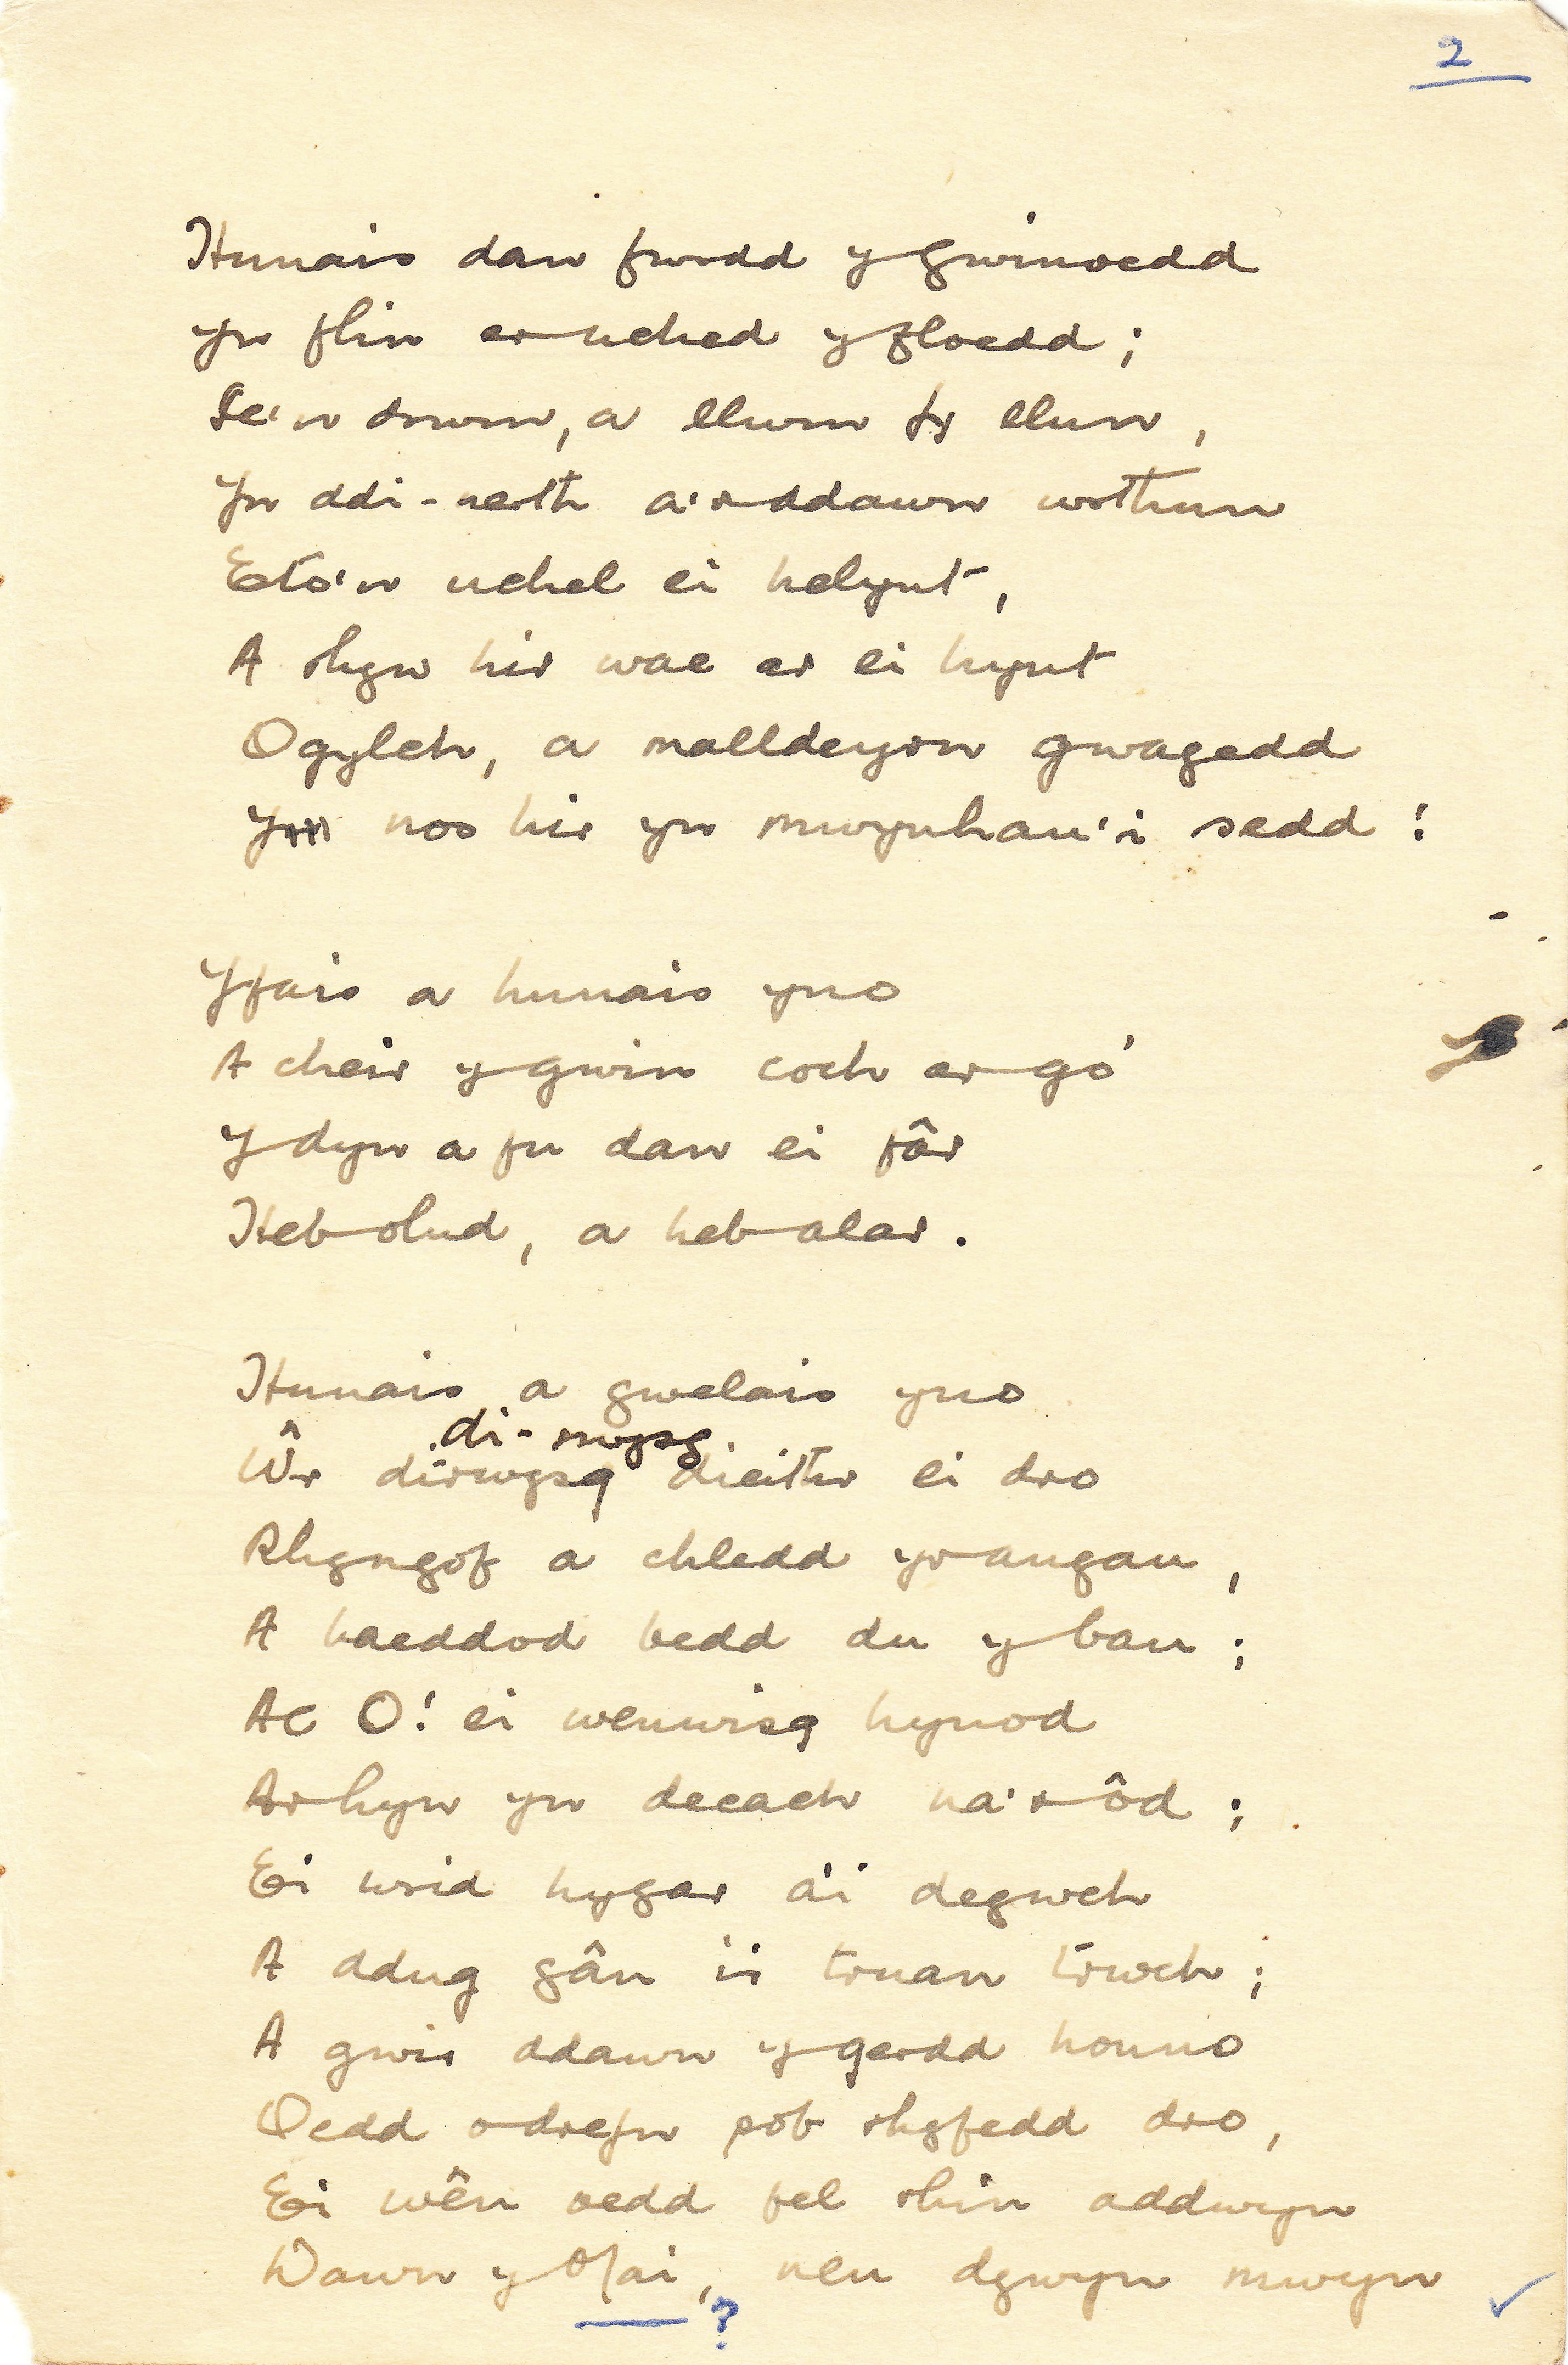 2
Hunais dan fwrdd y gwinoedd
Yn flin er uched y floedd;
Se'n drwm, a llwm fy llun,
Yn ddi-nerth a'r ddawn wrthun
Eto'n uchel ei helynt,
A rhyw hir wae ar ei hynt
Ogylch, a malldeyrn gwagedd
nos hir yn mwynhau'i sedd!
Yfais a hunais yno
A cheir y gwin coch er go'
Y dyn a fu dan ei fâr
Heb olud, a heb alar.
Hunais a gwelais yno
di-rwysg
Ŵr dirwysg dieithr ei dro
Rhyngof a chledd yr angau,
A haeddod bedd du y bau;
Ac O! ei wenwisg hynod
Ar hyn yn decach na'r ôd;
Ei wrid hygar a'i degwch
A ddug gân i'i truan trwch;
A gwir ddawn y gerdd honno
Oedd o drefn pob rhyfedd dro,
Ei wên oedd fel rhin addwyn
Dawn y Mai, neu dywyn mwyn
?